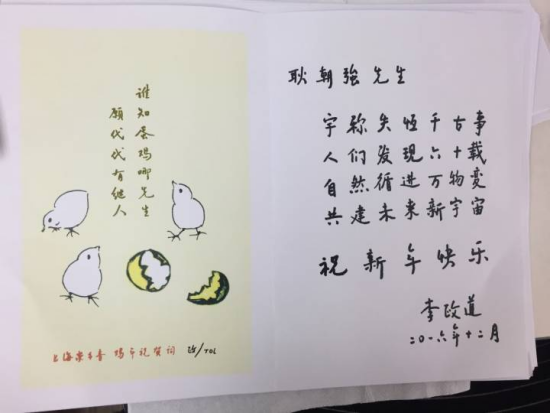 谁知蛋鸡哪先生
愿代代有继人
上海 鸡年祝贺词
耿朝強先生
宇称失恒千古事
人们发现六十载
自然循进万物変
共建未来新宇宙
祝新年快乐
李政道
二〇一六年十二月